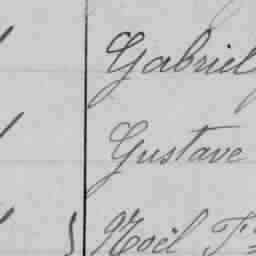 Gabriel
Gustave
Noël